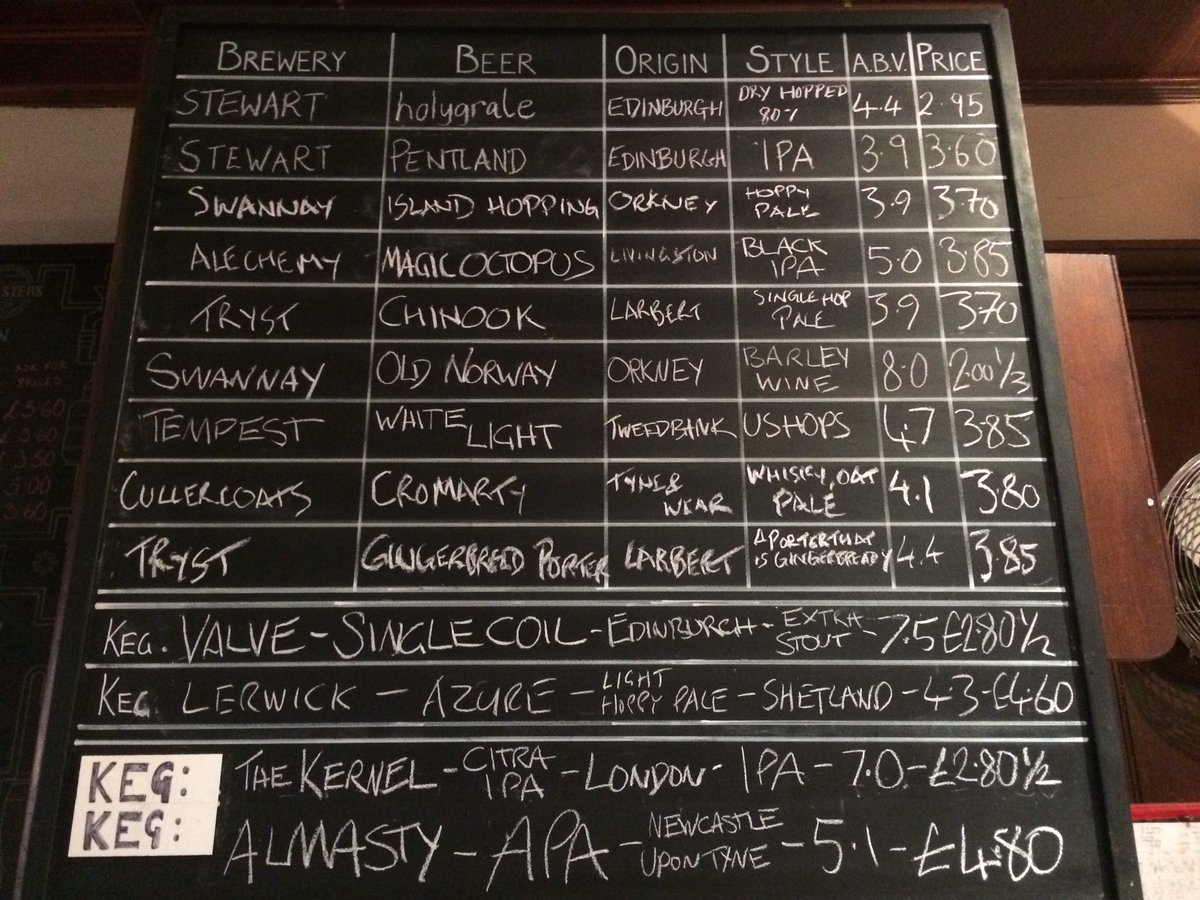 BREWERY BEER ORIGIN STYLE A.B.V. PRICE
STEWART holygrale EDINBURGH DRY HOPPED 80/ 4.4 2.95
STEWART PENTLAND EDINBURGH IPA 3.9 3.60
SWANNAY ISLAND HOPPING ORKNEY HOPPY PALE 3.9 3.70
ALECHEMY MAGIC OCTOPUS LIVINGSTON BLACK IPA 5.0 3.85
TRYST CHINOOK LARBERT SINGLE HOP PALE 3.9 3.70
SWANNAY OLD NORWAY ORKNEY BARLEY WINE 8.0 2.00 1/3
TEMPEST WHITE LIGHT TWEEDBANK US HOPS 4.7 3.85
CULLERCOATS CROMARTY TYNE & WEAR WHISKY, OAT PALE 4.1 3.80
TRYST GINGERBREAD PORTER LARBERT A PORTER THAT IS GINGERBREADY 4.4 3.85
KEG. VALVE - SINGLE COIL - EDINBURGH - EXTRA STOUT - 7.5 £2.80 1/2
KEG LERWICK - AZURE - LIGHT HOPPY PALE - SHETLAND - 4.3 - £4.60
KEG: THE KERNEL - CITRA IPA - LONDON - IPA - 7.0 - £2.80 1/2
KEG: ALMASTY - APA - NEWCASTLE UPON TYNE - 5.1 - £4.80
STERS
ASK FOR
PRICES
£3.60
£3.60
£3.50
5.00
3.60